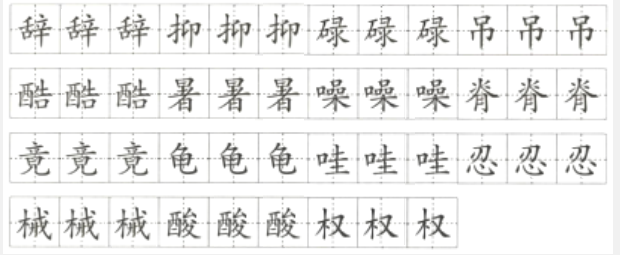 辞辞辞抑抑抑碌碌碌吊吊吊
酷酷酷暑暑暑噪噪噪脊脊脊
竟竟竟龟龟龟哇哇哇忍忍忍
械械械酸酸酸权权权